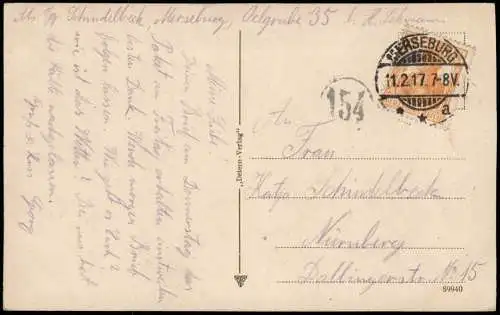 Schindelbeck, Merseburg, Oelgrube 35 b. H. Lehmann
Meine Liebe!
Deinen Brief am Donnerstag, das
Paket am Freitag erhalten einstweilen
besten Dank. Werde morgen Brief
folgen lassen. Wie geht es Euch?
wie ist das Wetter? Bei uns hat
die Kälte nachgelassen.
Gruß & Kuss Georg
"Deleem-Verlag"
MERSEBURG
11.2.17. 7-8V.
* * a
154
An
Frau
Katja Schindelbeck
Nürnberg
Dallingerstr. No 15
89940